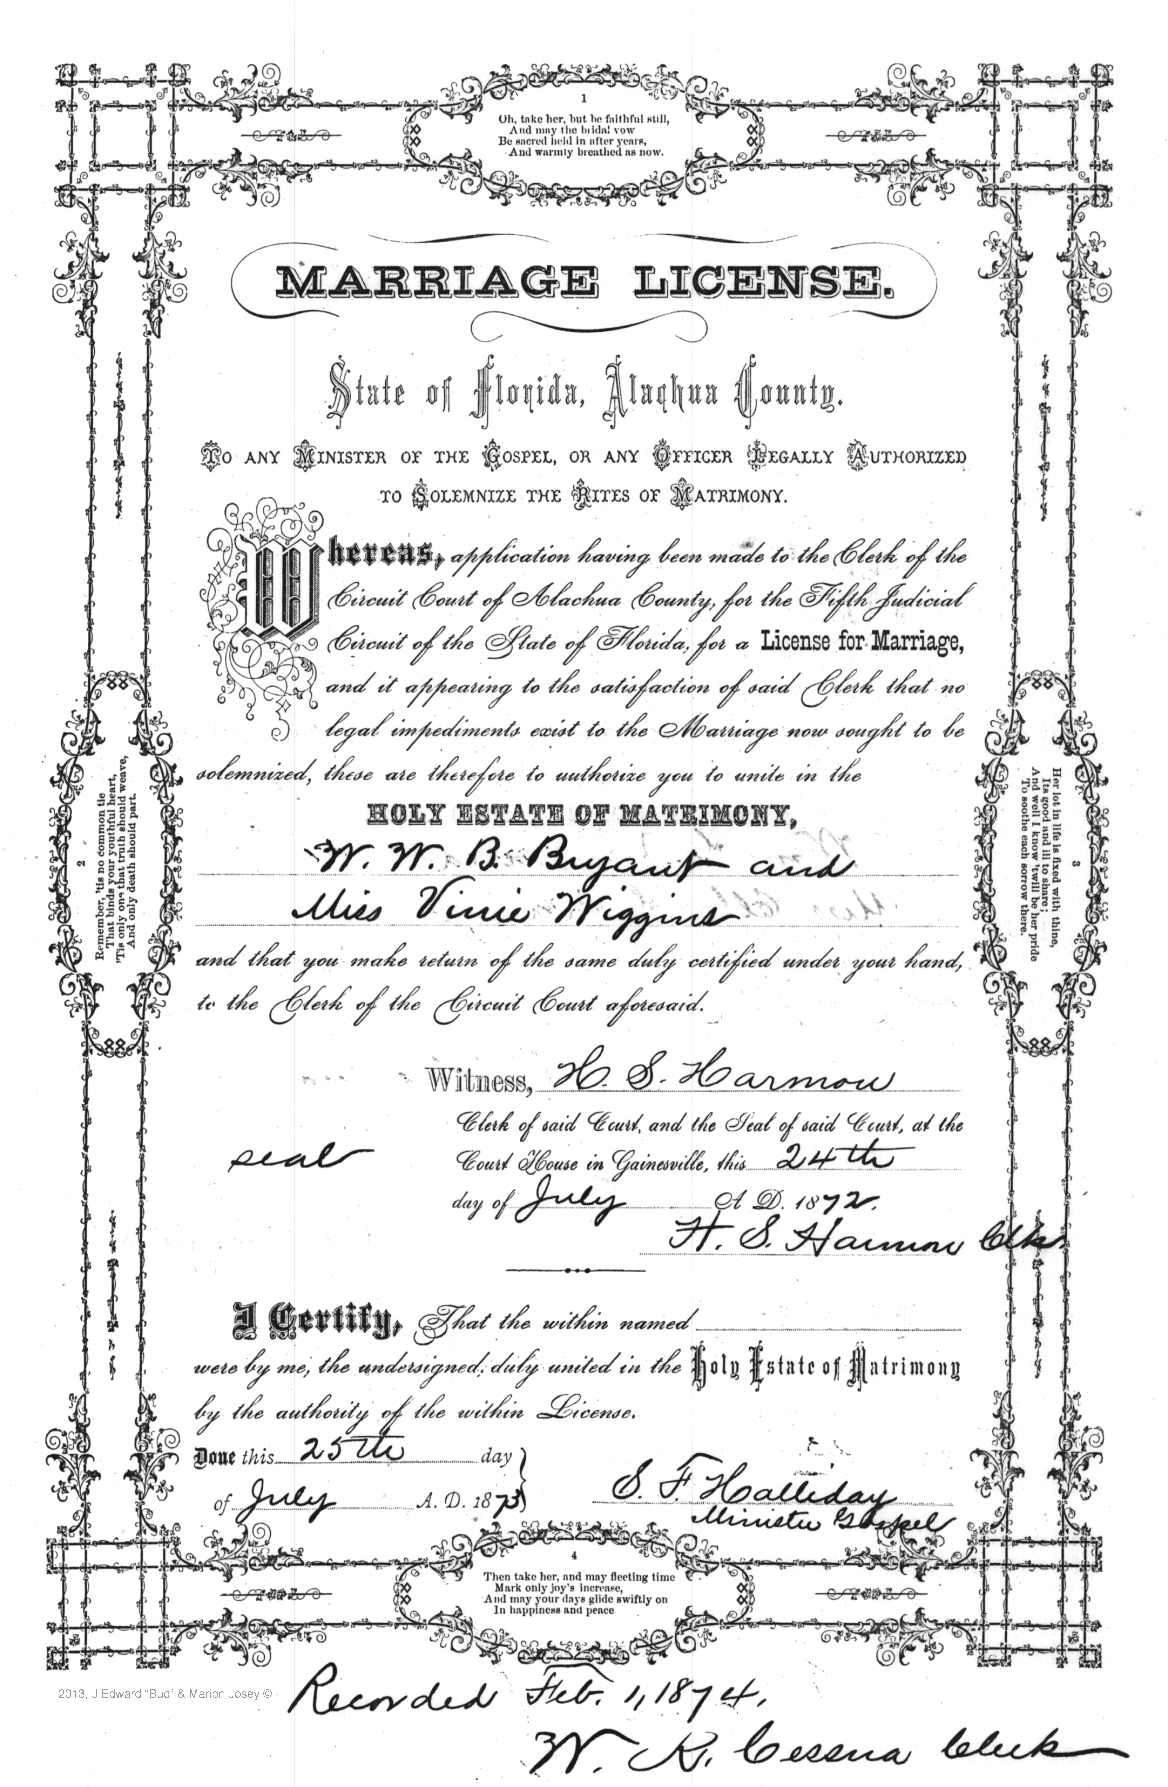 1
Oh, take her, but be faithful still,
And may the bridal vow
Be sacred held in after years,
And warmly breathed as now.
MARRIAGE LICENSE.
State of Florida, Alachua County.
TO ANY MINISTER OF THE GOSPEL, OR ANY OFFICER LEGALLY AUTHORIZED
TO SOLEMNIZE THE RITES OF MATRIMONY.
Whereas, application having been made to the Clerk of the
Circuit Court of Alachua County, for the Fifth Judicial
Circuit of the State of Florida, for a License for Marriage,
and it appearing to the satisfaction of said Clerk that no
legal impediments exist to the Marriage now sought to be
solemnized, these are therefore to authorize you to unite in the
HOLY ESTATE OF MATRIMONY,
W. W. B. Bryant and
Miss Vinie Wiggins
and that you make return of the same duly certified under your hand,
to the Clerk of the Circuit Court aforesaid.
2
Remember, 'tis no common tie
That binds your youthful heart,
'Tis only one that truth should weave,
And only death should part.
3
Her lot in life is fixed with thine,
Its good and ill to share;
And well I know 'twill be her pride
To soothe each sorrow there.
Witness, H. S. Harmon
Clerk of said Court, and the Seal of said Court, at the
seal
Court House in Gainesville, this 24th
day of July A. D. 1872.
H. S. Harmon Clk.
I Certify, That the within named
were by me, the undersigned, duly united in the Holy Estate of Matrimony
by the authority of the within License.
Done this 25th day
of July A. D. 1873
S. F. Halliday
Minister Gospel
4
Then take her, and may fleeting time
Mark only joy's increase,
And may your days glide swiftly on
In happiness and peace
2013, J Edward "Bud" & Marion Josey ©
Recorded Feb. 1, 1874.
W. K. Cessna Clerk